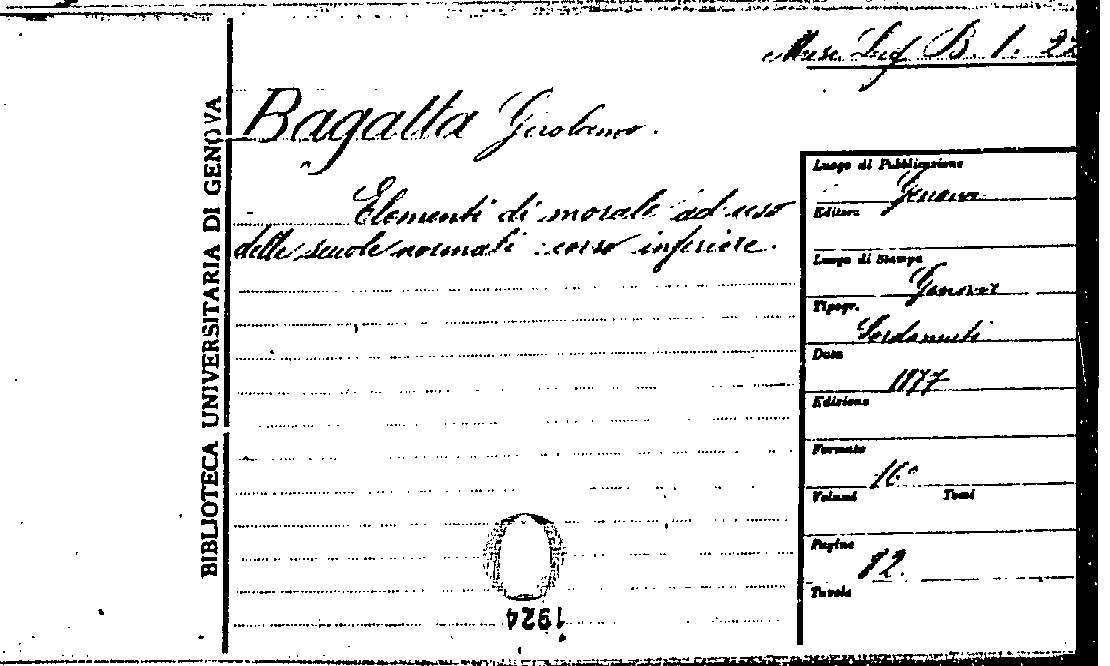 BIBLIOTECA UNIVERSITARIA DI GENOVA
B. 1. 22
Bagatta Girolamo.
Elementi di morale ad uso
delle scuole normali : corso inferiore.
Luogo di Pubblicazione
Genova
Editore
Luogo di Stampa
Genova
Tipogr.
Sordomuti
Data
1877
Edizione
Formato
16°
Volumi Tomi
Pagine
82.
Tavole
1924